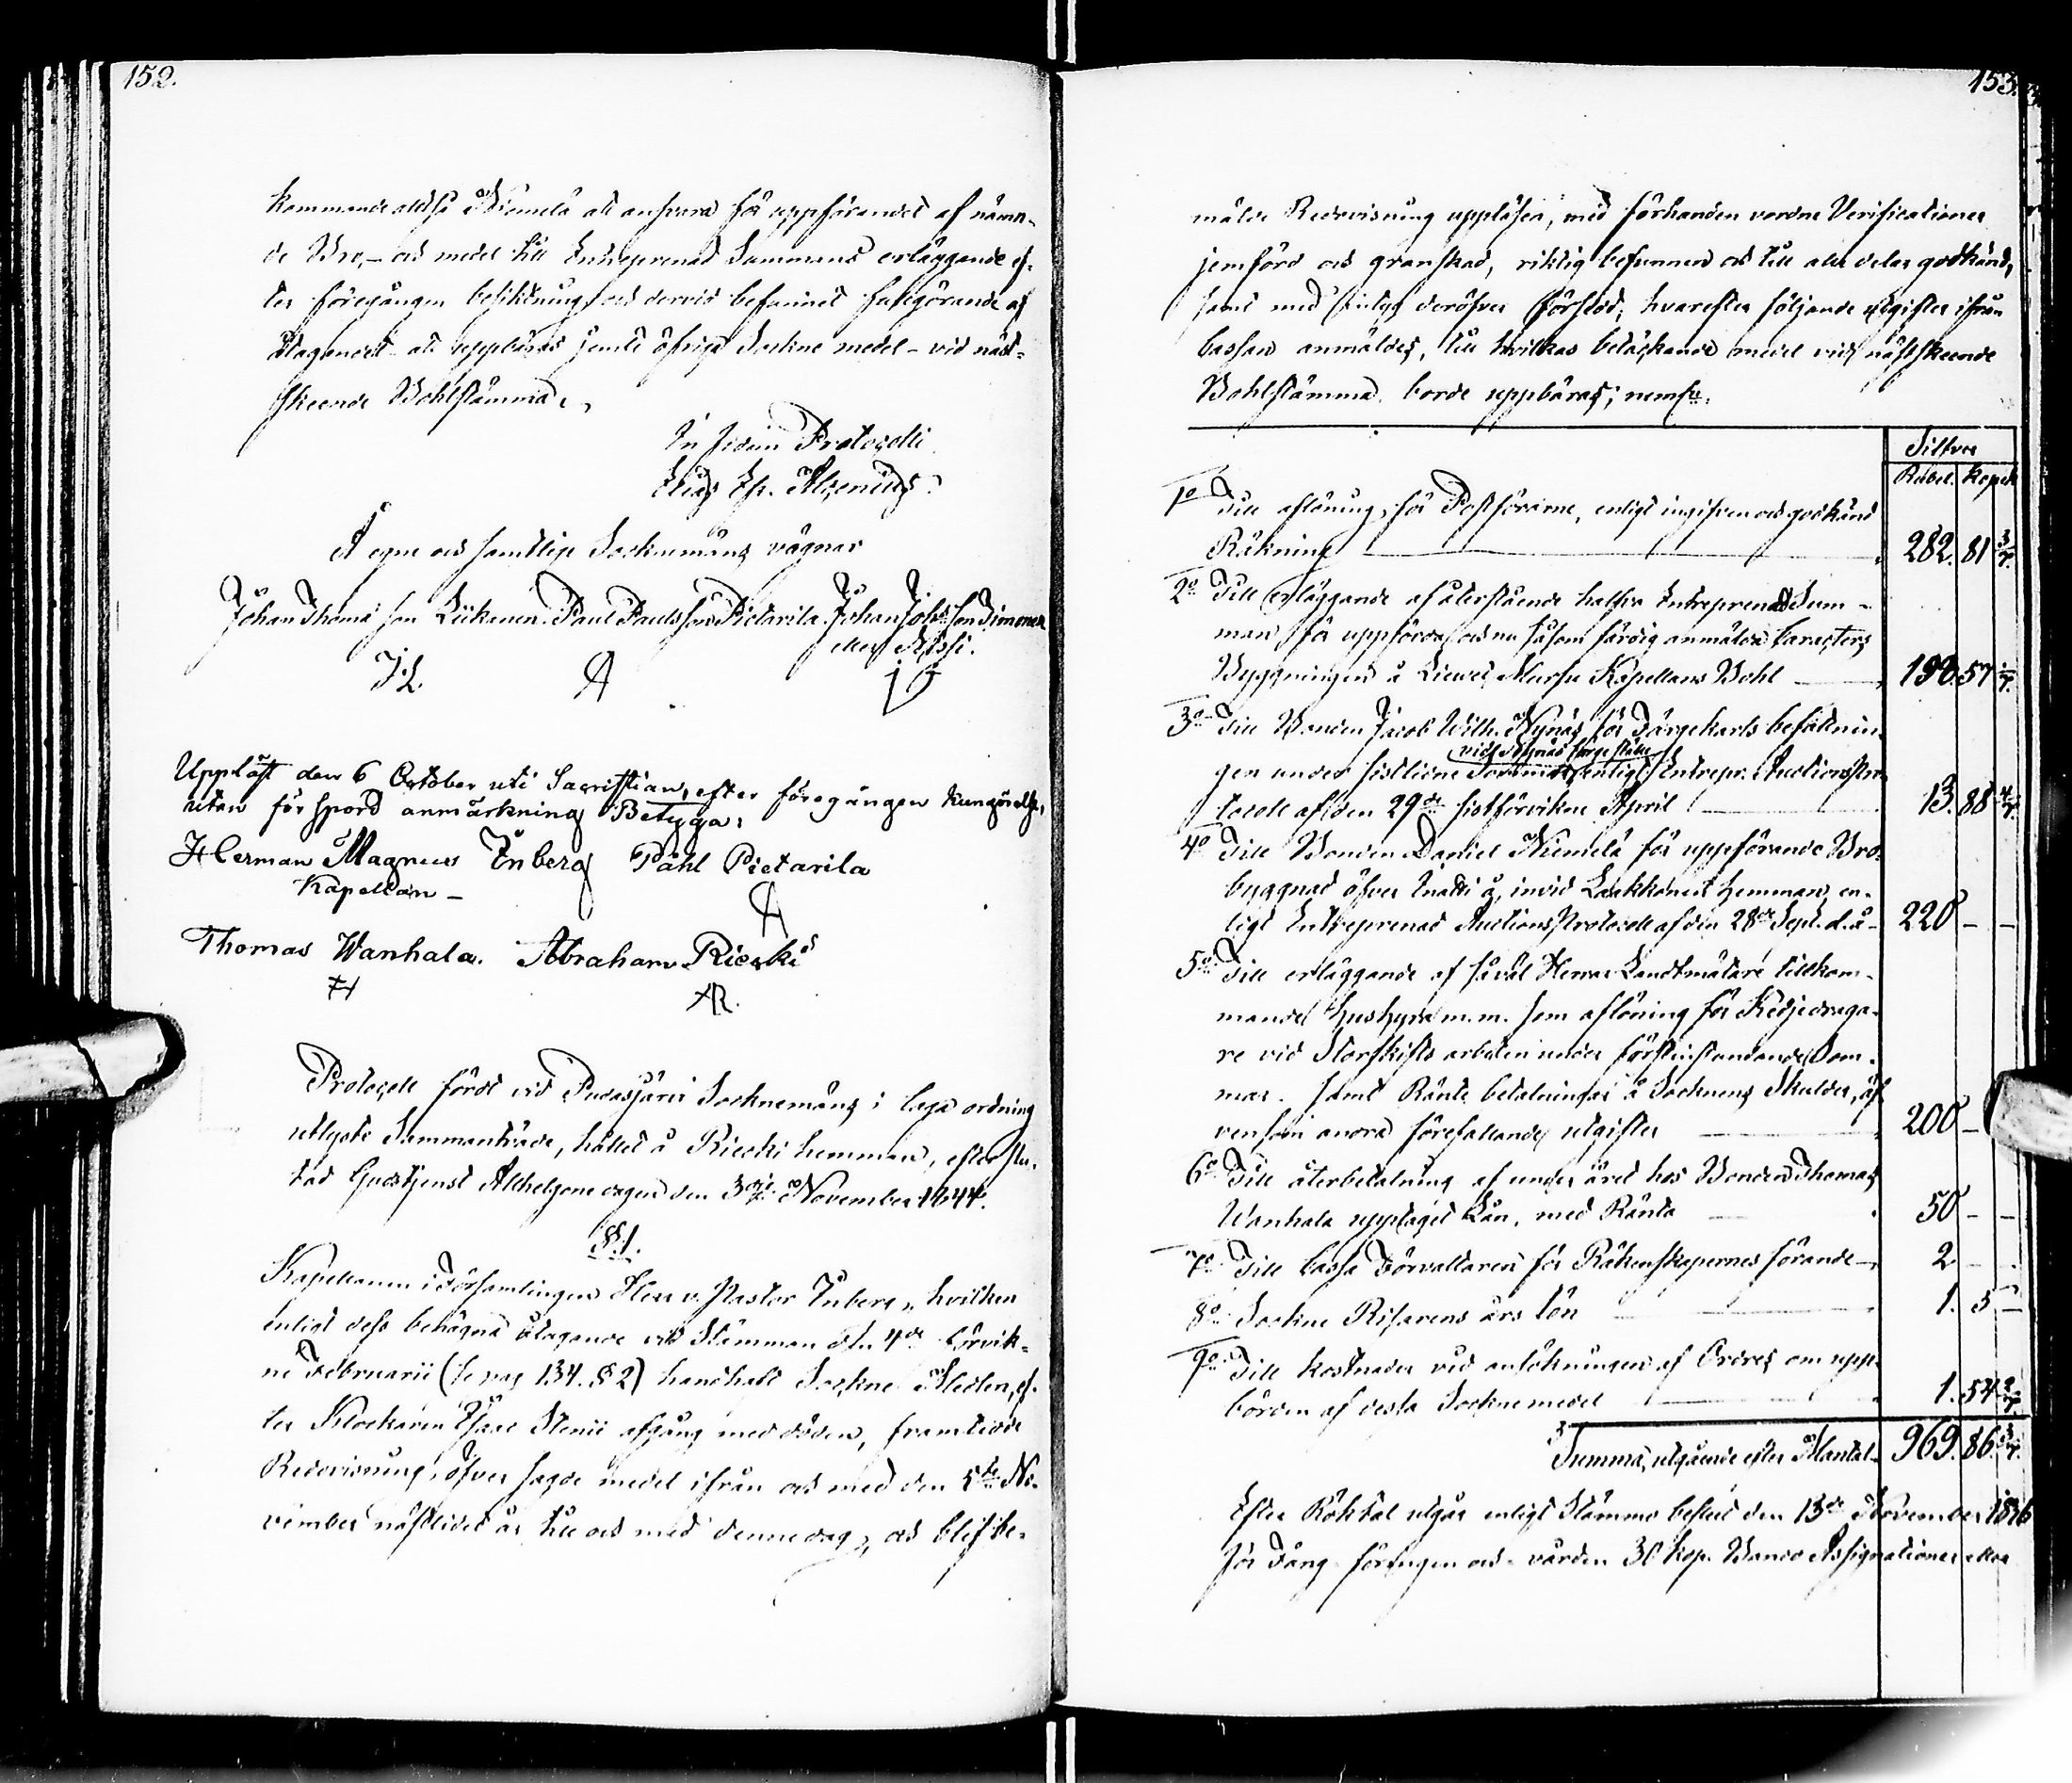 152.
kommande altså Niemelä att ansvara för uppförandet af nämn-
de Bro, – och medel till Entreprenad Summans erläggande ef-
ter föregången besiktning och dervid befunnet fullgörande af
åtagandet – att uppbäras jemte öfriga Sockne medel – vid näst-
skeende Bohlstämma.
In fidem Protocolli
Elias Er. Alcenius
Å egne och samtlige Sockнemäns vägnar
Johan Thoma son Liikanen. Paul Paulsson Pietarila. Johan Johs son Simonen
eller Ässi.
J.L.
Uppläst den 6 October uti Sacristian, efter föregången kungörelse,
utan förspord anmärkning Betyga:
Herman Magnus Enberg Påhl Pietarila
Kapellan –
Thomas Wanhala. Abraham Riecki
AR.
Protocoll fördt vid Pudasjärvi Socknemäns i laga ordning
utlyste Sammanträde, hållet å Riecki hemman, efter slu-
tad Gudstjenst Allhelgone dagen den 3dje November 1844.
§.1.
Kapellanen i Församlingen Herr v. Pastor Enberg, hvilken
enligt dess behagna åtagande vid Stämman den 4de förvik-
ne Februarii (se pag 134. § 2) handhaft Sockne Medlen, ef-
ter Klockaren Isaac Stenii afgång med döden, framtedde
Redovisning öfver sagde medel ifrån och med den 5te No-
vember nästlidet år till och med denne dag, och blef be-
153.
mälde Redovisning uppläsen, med förhanden varande Verificationer
jemförd och granskad, riktig befunnen och till alla delar godkänd,
samt med intyg deröfver försedd; hvarefter följande utgifter ifrån
Cassan anmäldes, till hvilkas betäckande medel vid nästskeende
Bohlstämma borde uppbäras; neml:
Silfver
Rubel. Kopek
1o Till aflöning för Postförarne, enligt ingifven och godkänd
Räkning 282. 81 3/7.
2o Till erläggande af återstående halfva Entreprenad Sum-
man för uppförde och nu såsom färdig anmälde Caracters
Byggningen å Liewes Mursu Kapellans Bohl 57
3o Till Bonden Jacob Wilh. Nynäs för Färgekarls befattnin-
vid Nynäs färgeställe
gen under sistlidne Sommar enligt Entrepr. Auctions Pro-
tocoll af den 29de sistförvikne April 13. 88 4/7.
4o Till Bonden Daniel Niemelä för uppförande Bro-
byggnad öfver Inatti å, invid Laakkonen hemman, en-
ligt Entreprenad Auctions Protocoll af den 28de Sept. d. å. 220 – –
5o Till erläggande af såväl Herrar Landtmätare tillkom-
mande hushyra m.m. som aflöning för Kedjedraga-
re vid Storskifts arbeten under förstinstundande Som-
mar. samt Ränte betalningar å Socknens Skulder, äf-
vensom andra förefallande utgifter 200 –
6o Till återbetalning af under året hos Bonden Thomas
Wanhala upptaget Lån, med Ränta 50 – –
7o Till Cassa Förvaltaren för Räkenskapernes förande 2 – –
8o Sockne Pisarens års lön 1. 5 –
9o Till kostnader vid ansökningen af Ordres om upp-
börden af desse Sockne medel 1. 54 2/7.
Summa, utgående efter Mantal 969. 86 3/7.
Efter Röktal utgår enligt Stämmo beslut den 13de November 1836
för Fång föringen och vården 30 kop. Banco Assignationer eller